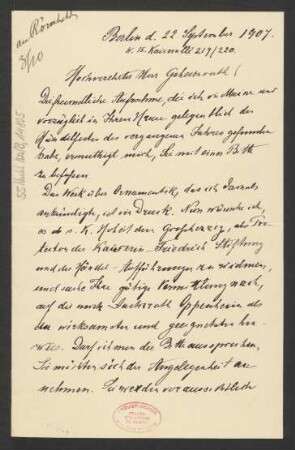 an Römheld
3/10
Berlin d. 22 September 1907.
W. 15. Kaiserallee 219/220.
Hochverehrter Herr Geheimrath!
Die freundliche Aufnahme, die ich in Mainz und
vorzüglich in Ihrem Hause gelegentlich des
Händelfestes des vergangenen Jahres gefunden
habe, ermuthigt mich, Sie mit einer Bitte
zu befassen
Das Werk über Ornamentik, das ich damals
ankündigte, ist im Druck. Nun wünsche ich
es S. K. Hoheit dem Grossherzog, als Pro-
tector der Kaiserin-Friedrich Stiftung
und der Händel-Aufführungen zu widmen,
und suche Ihre gütige Vermittlung nach,
auf die mich Justizrath Oppenheim als
den wirksamsten und geeignetsten
wies. Darf ich nun die Bitte aussprechen,
Sie möchten sich der Angelegenheit an-
nehmen. Sie werden voraussichtlich